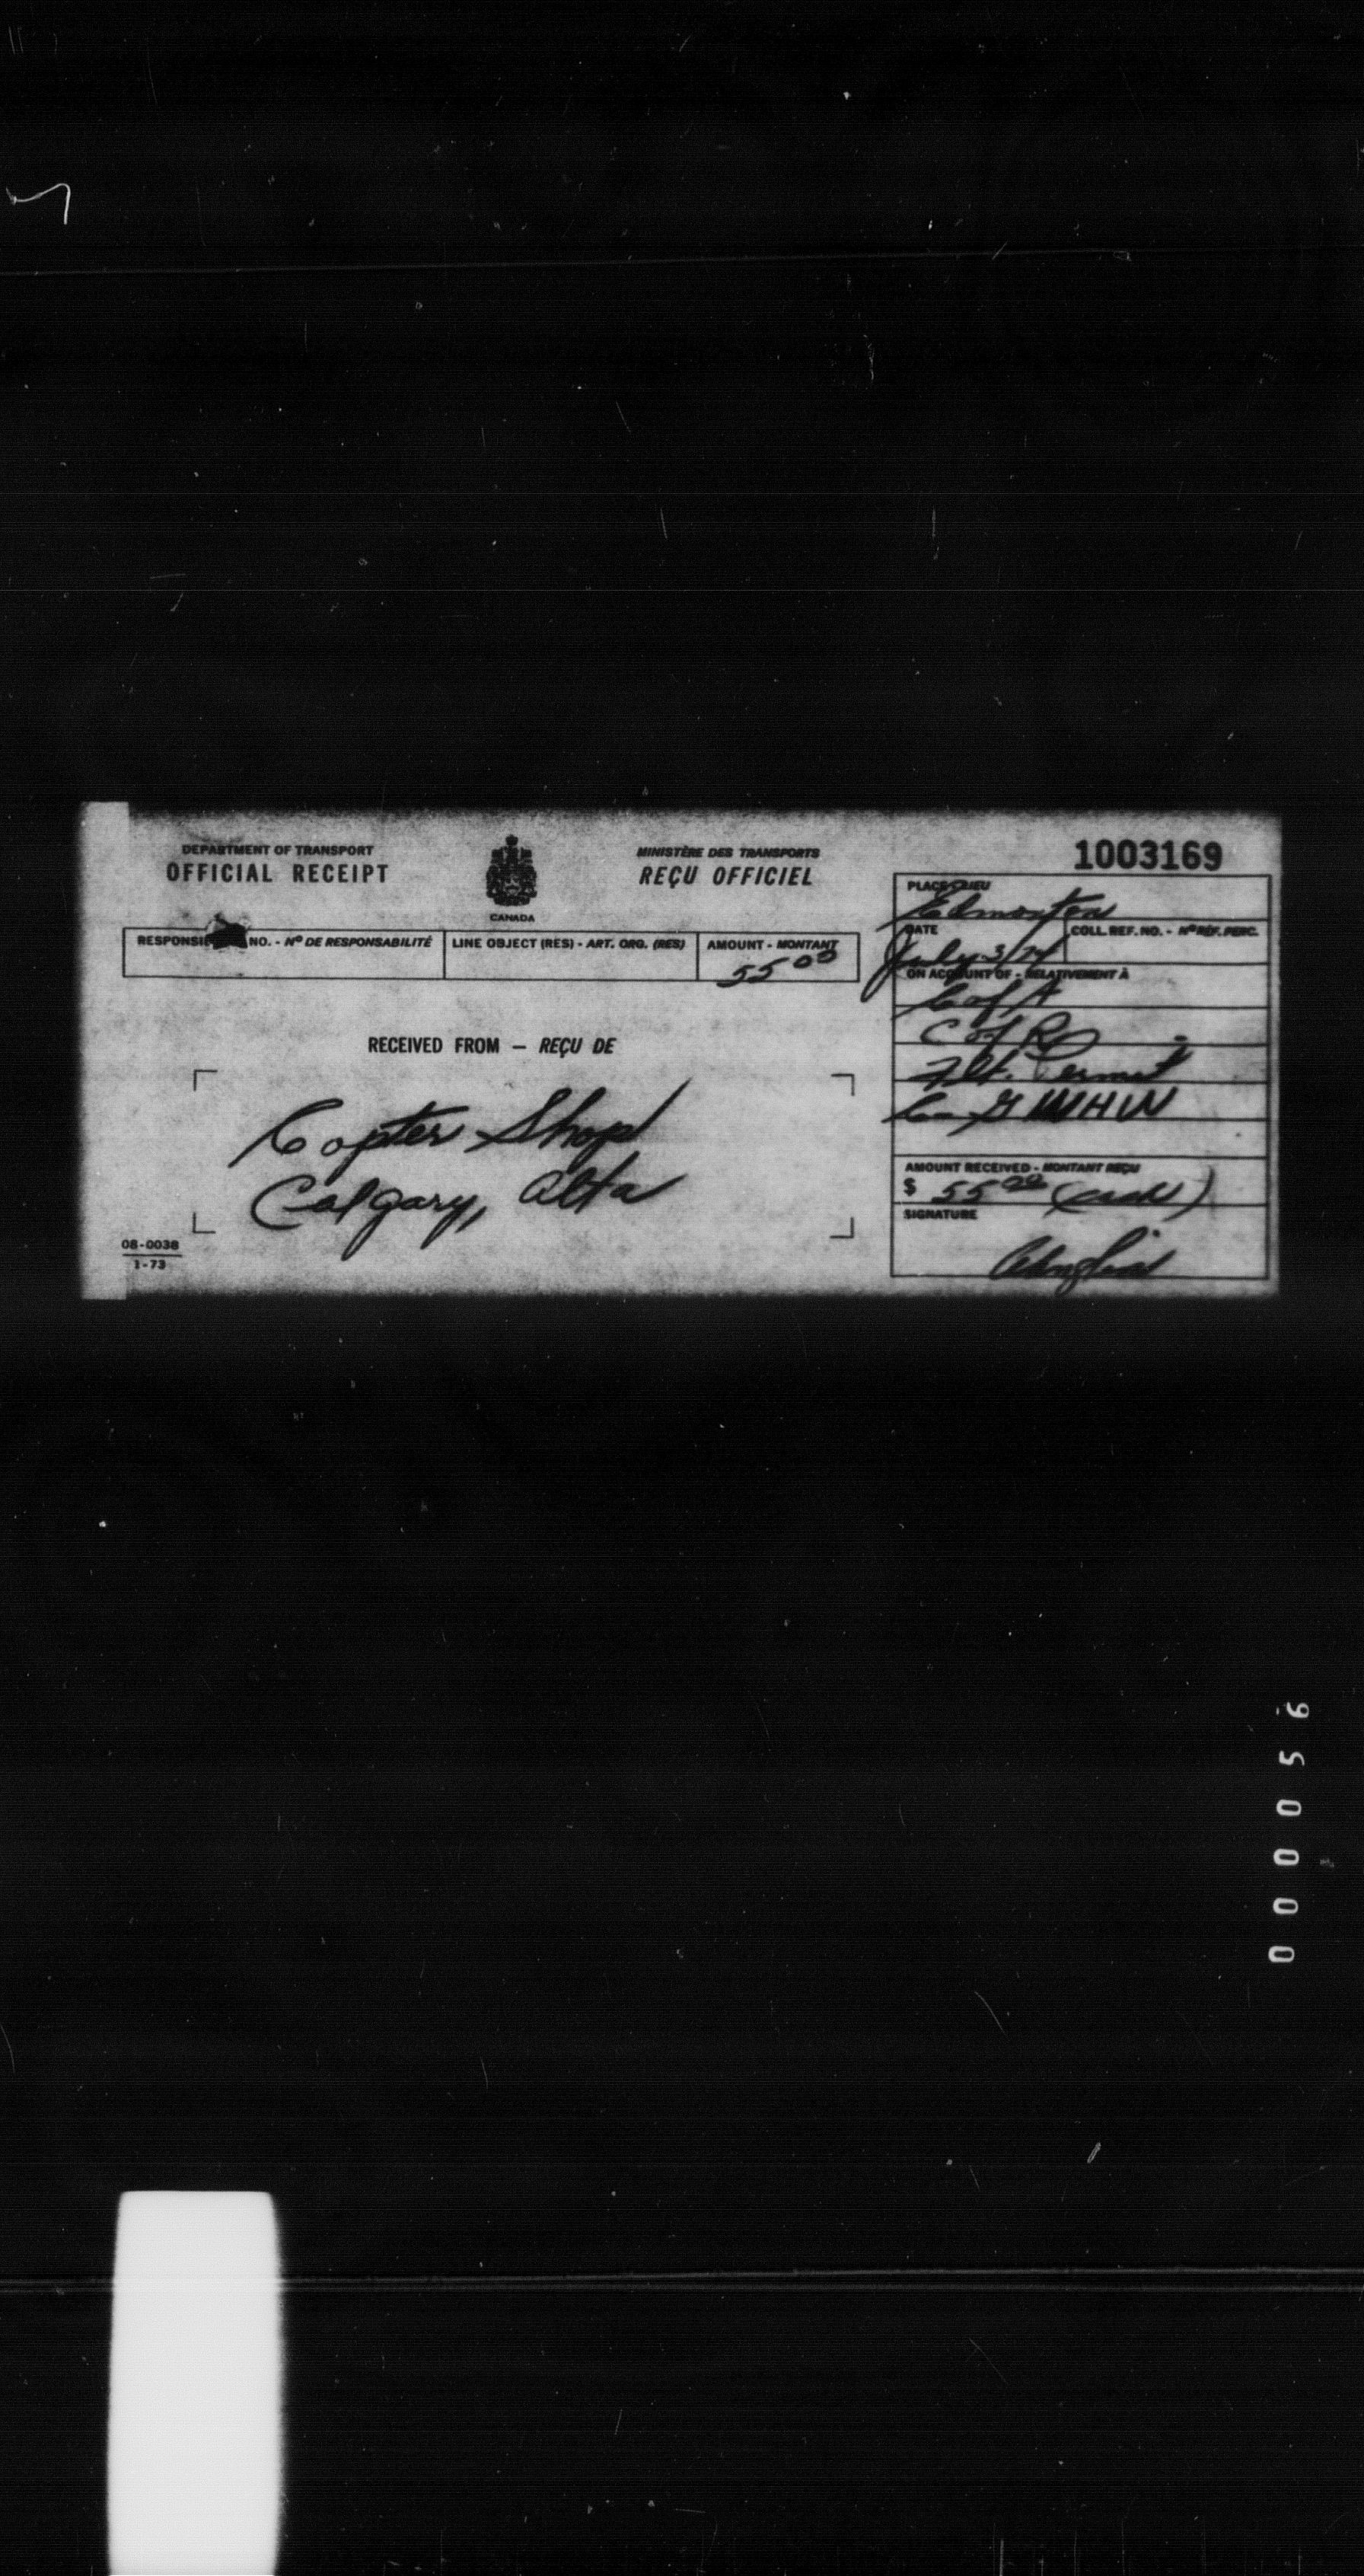 DEPARTMENT OF TRANSPORT
OFFICIAL RECEIPT
CANADA
MINISTÈRE DES TRANSPORTS
REÇU OFFICIEL
1003169
PLACE
Edmonton
DATE
COLL. REF. NO. - Nº RÉF. PERC.
July 3/74
NO. - Nº DE RESPONSABILITÉ
LINE OBJECT (RES) - ART. ORG. (RES)
AMOUNT - MONTANT
55 00
ON ACCOUNT OF - RELATIVEMENT À
C of A
C of R
Flt. Permit
C-GWHW
RECEIVED FROM — REÇU DE
Copter Shop
Calgary, Alta
AMOUNT RECEIVED - MONTANT REÇU
$ 55 00 (cash)
SIGNATURE
08-0038
1-73
000056